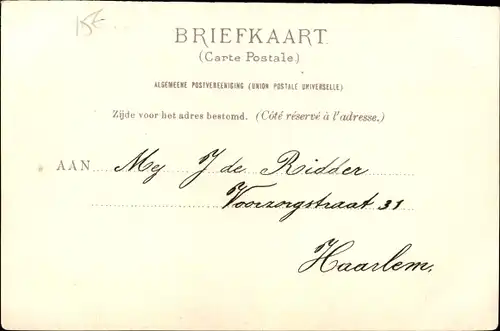 BRIEFKAART.
(Carte Postale.)
ALGEMEENE POSTVEREENIGING (UNION POSTALE UNIVERSELLE)
Zijde voor het adres bestemd. (Côté réservé à l'adresse.)
AAN Mej J de Ridder
Voorzorgstraat 31
Haarlem.